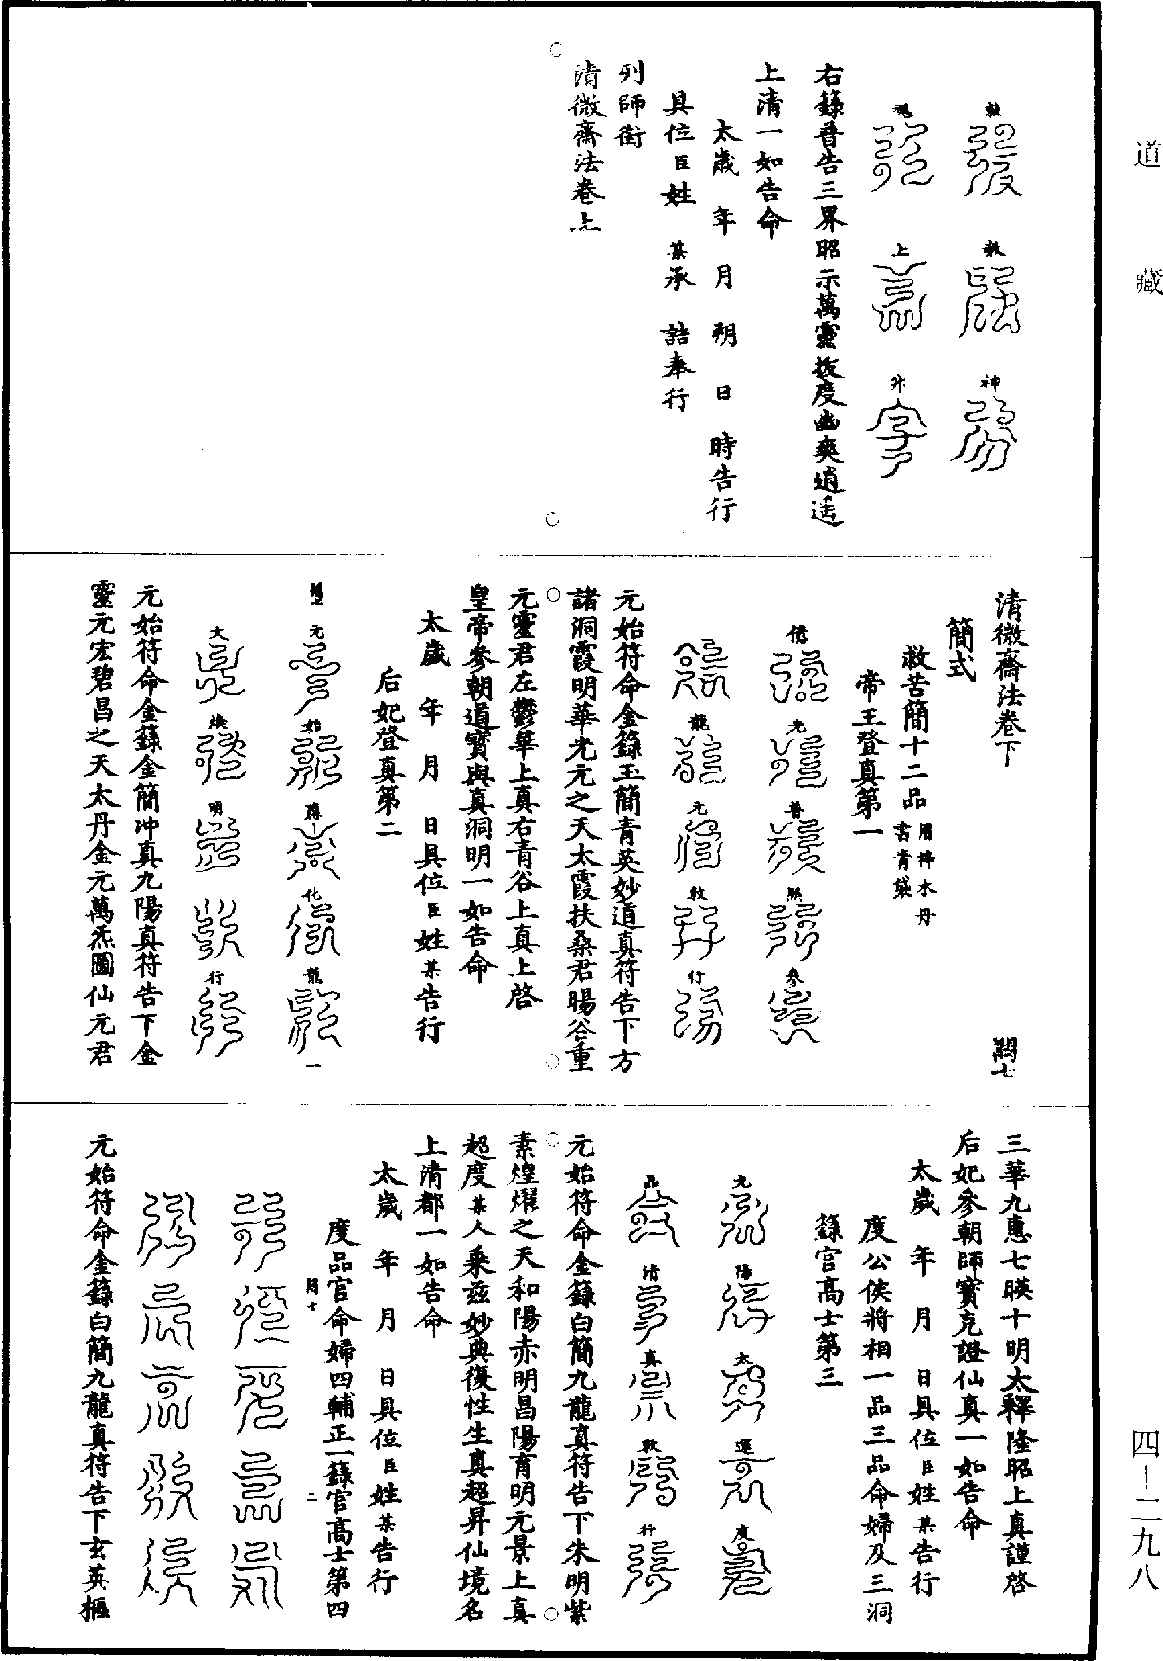 道藏
敕
救
神
魂
上
升
右籙普告三界昭示萬靈拔度幽爽逍遙
上清一如告命
太歲年月朔日時告行
具位臣姓某承誥奉行
列師銜
清微齋法卷上
清微齋法卷下
簡式
救苦簡十二品
帝王登真第一
光
普
參
龍
元
敕
行
元始符命金籙玉簡青英妙道真符告下方
諸洞霞明華光元之天太霞扶桑君暘谷重
元靈君左鬱華上真右青谷上真上啓
皇帝參朝道寶與真洞明一如告命
太歲年月日具位臣姓某告行
后妃登真第二
元
始
化
龍
大
煥
明
行
元始符命金籙金簡沖真九陽真符告下金
靈元宏碧昌之天太丹金元萬炁圖仙元君
三華九惠七暎十明太釋隆昭上真謹啓
后妃參朝師寶克證仙真一如告命
太歲年月日具位臣姓某告行
度公侯將相一品三品命婦及三洞
籙官高士第三
九
陽
太
運
度
清
真
敕
行
元始符命金籙白簡九龍真符告下朱明紫
素煌燿之天和陽赤明昌陽育明元景上真
超度某人乘茲妙典復性生真超昇仙境名
上清都一如告命
太歲年月日具位臣姓某告行
度品官命婦四輔正一籙官高士第四
元始符命金籙白簡九龍真符告下玄英樞
四-二九八